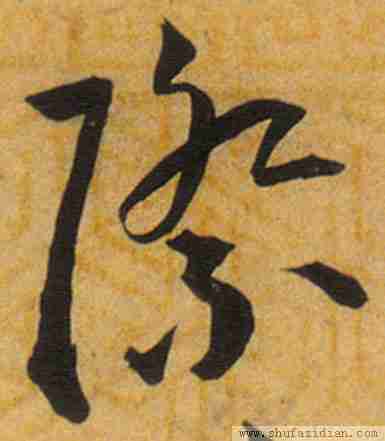 際
www.shufazidian.com